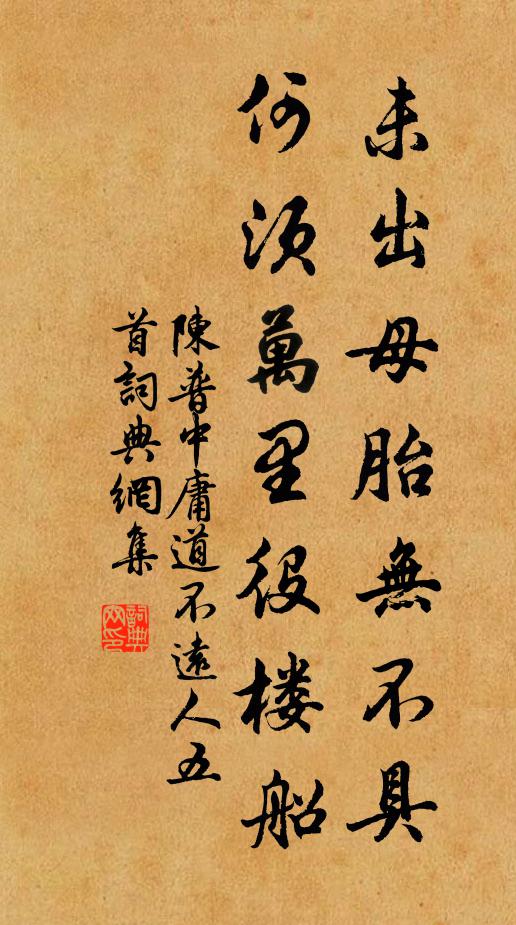 未出母胎無不具
何須萬里役楼船
陳普中庸道不遠人五
首詞典網集
詞典網印